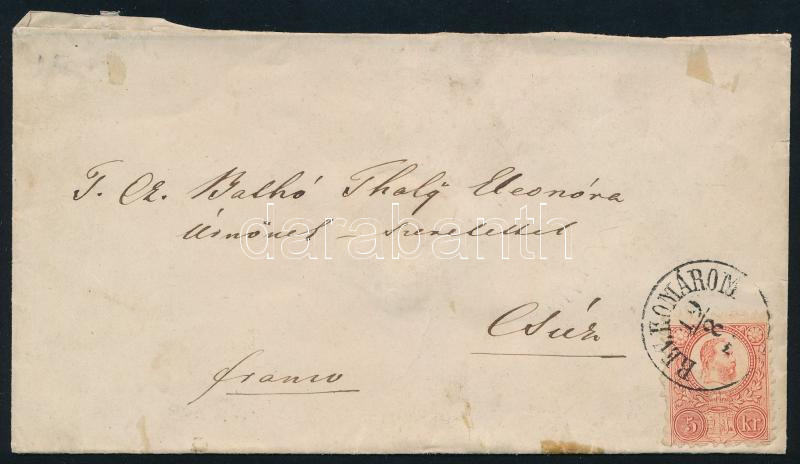 T. Cz. Balhó Thaly Eleonóra
Úrnőnek – szeretettel
darabanth
Csúz
franco
RÉV KOMÁROM
19/8
5 kr